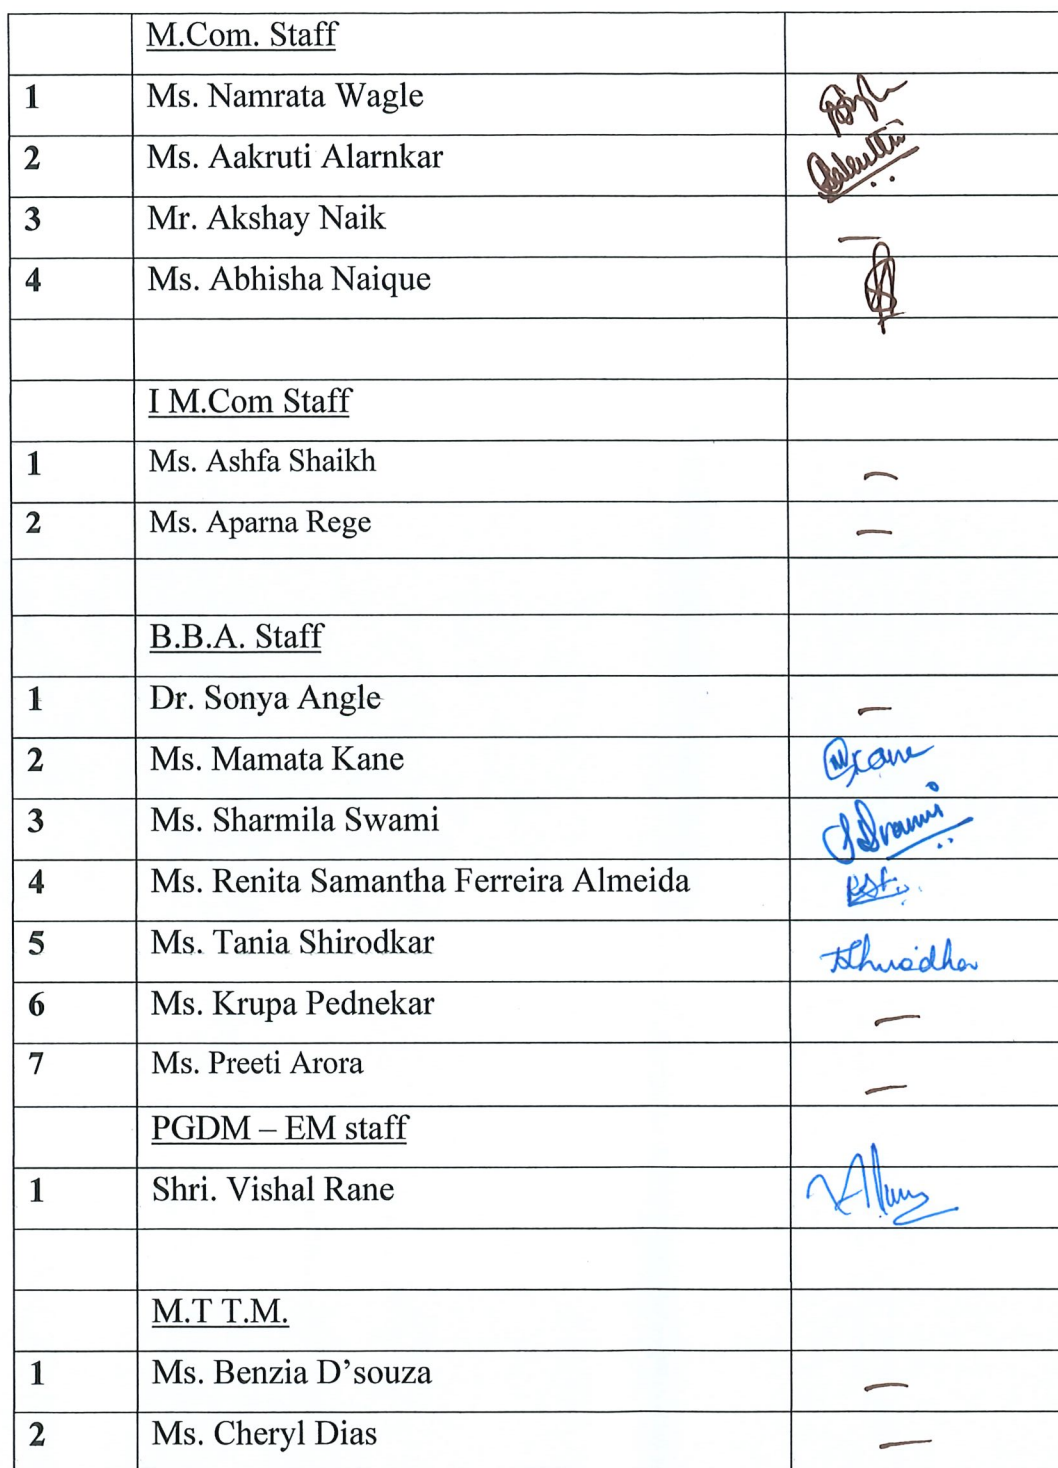 M.Com. Staff
1 Ms. Namrata Wagle
2 Ms. Aakruti Alarnkar
3 Mr. Akshay Naik —
4 Ms. Abhisha Naique
I M.Com Staff
1 Ms. Ashfa Shaikh —
2 Ms. Aparna Rege —
B.B.A. Staff
1 Dr. Sonya Angle —
2 Ms. Mamata Kane
3 Ms. Sharmila Swami
4 Ms. Renita Samantha Ferreira Almeida
5 Ms. Tania Shirodkar
6 Ms. Krupa Pednekar —
7 Ms. Preeti Arora —
PGDM – EM staff
1 Shri. Vishal Rane
M.T T.M.
1 Ms. Benzia D’souza —
2 Ms. Cheryl Dias —